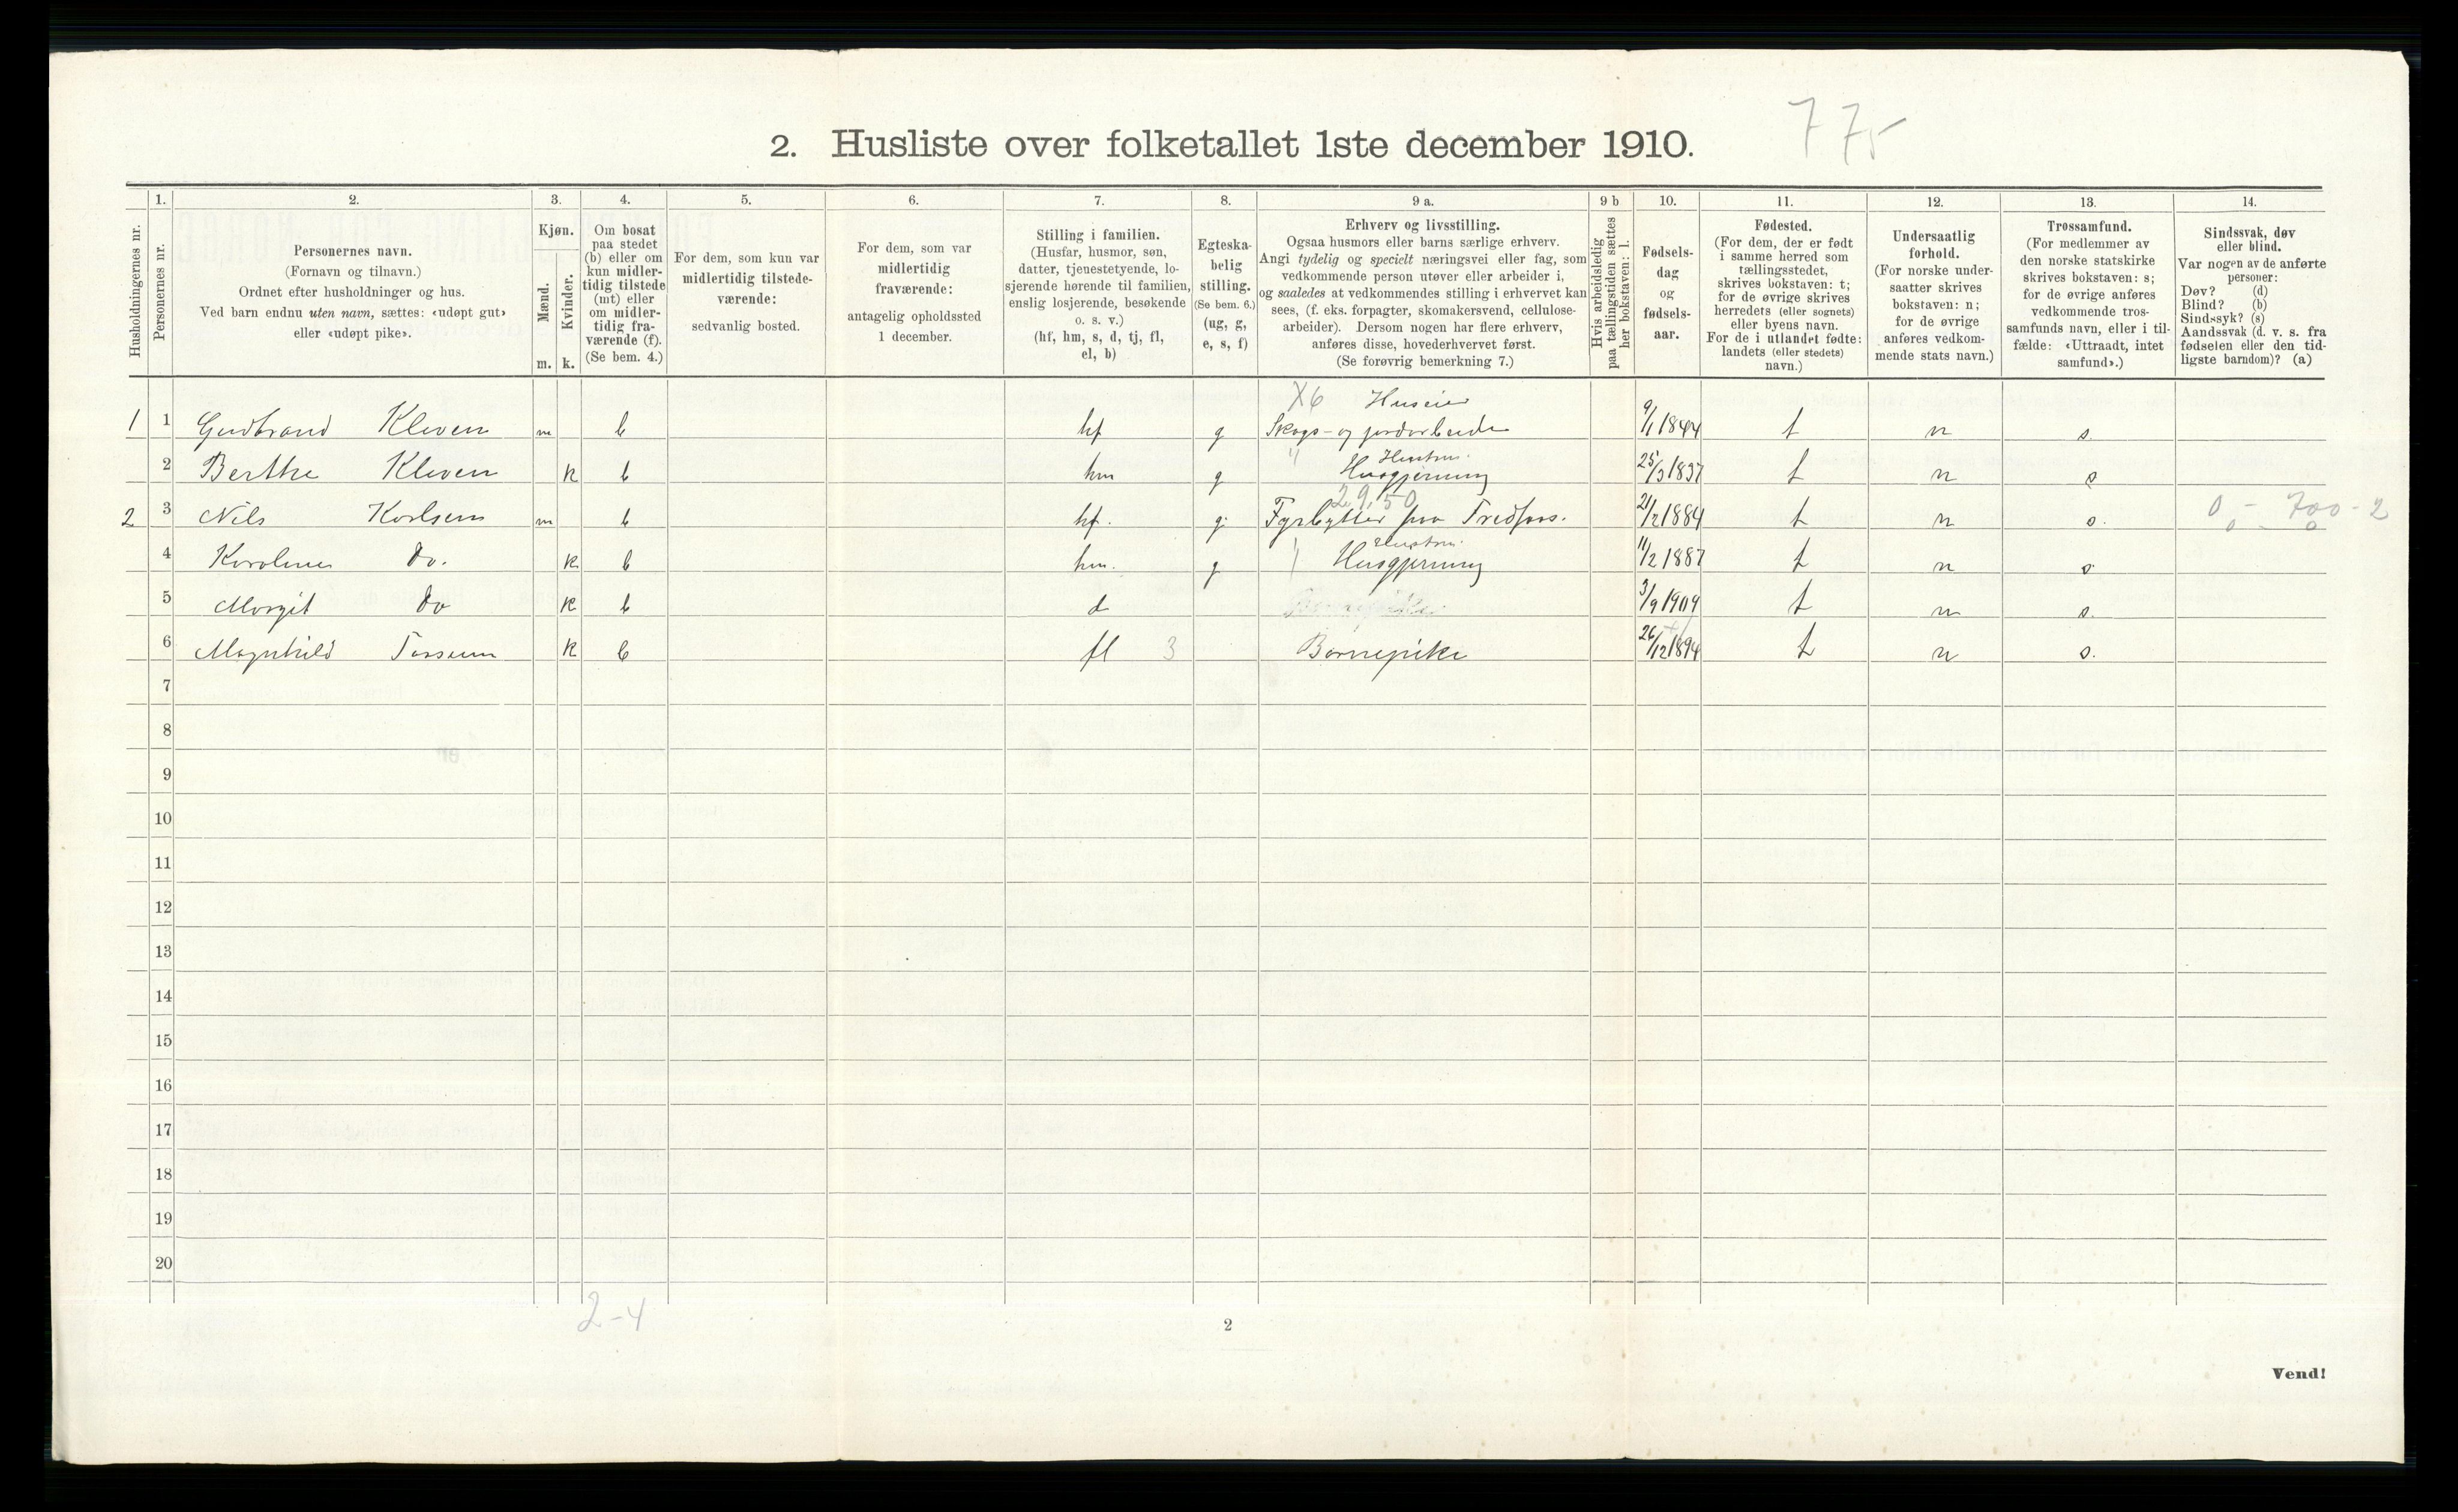 775
2. Husliste over folketallet 1ste december 1910.
Husholdningernes nr.
1.
Personernes nr.
2.
Personernes navn.
(Fornavn og tilnavn.)
Ordnet efter husholdninger og hus.
Ved barn endnu uten navn, sættes: «udøpt gut»
eller «udøpt pike».
3.
Kjøn.
Mænd.
Kvinder.
m. k.
4.
Om bosat
paa stedet
(b) eller om
kun midler-
tidig tilstede
(mt) eller
om midler-
tidig fra-
værende (f).
(Se bem. 4.)
5.
For dem, som kun var
midlertidig tilstede-
værende:
sedvanlig bosted.
6.
For dem, som var
midlertidig
fraværende:
antagelig opholdssted
1 december.
7.
Stilling i familien.
(Husfar, husmor, søn,
datter, tjenestetyende, lo-
sjerende hørende til familien,
enslig losjerende, besøkende
o. s. v.)
(hf, hm, s, d, tj, fl,
el, b)
8.
Egteska-
belig
stilling.
(Se bem. 6.)
(ug, g,
e, s, f)
9 a.
Erhverv og livsstilling.
Ogsaa husmors eller barns særlige erhverv.
Angi tydelig og specielt næringsvei eller fag, som
vedkommende person utøver eller arbeider i,
og saaledes at vedkommendes stilling i erhvervet kan
sees, (f. eks. forpagter, skomakersvend, cellulose-
arbeider). Dersom nogen har flere erhverv,
anføres disse, hovederhvervet først.
(Se forøvrig bemerkning 7.)
9 b
Hvis arbeidsledig
paa tællingstiden sættes
her bokstaven: l.
10.
Fødsels-
dag
og
fødsels-
aar.
11.
Fødested.
(For dem, der er født
i samme herred som
tællingsstedet,
skrives bokstaven: t;
for de øvrige skrives
herredets (eller sognets)
eller byens navn.
For de i utlandet fødte:
landets (eller stedets)
navn.)
12.
Undersaatlig
forhold.
(For norske under-
saatter skrives
bokstaven: n;
for de øvrige
anføres vedkom-
mende stats navn.)
13.
Trossamfund.
(For medlemmer av
den norske statskirke
skrives bokstaven: s;
for de øvrige anføres
vedkommende tros-
samfunds navn, eller i til-
fælde: «Uttraadt, intet
samfund».)
14.
Sindssvak, døv
eller blind.
Var nogen av de anførte
personer:
Døv? (d)
Blind? (b)
Sindssyk? (s)
Aandssvak (d. v. s. fra
fødselen eller den tid-
ligste barndom)? (a)
X6 Huseier
1 1 Gudbrand Kleven m b hf g Skogs- og jordarbeide 9/1 1844 t n s.
Hustru.
2 Berthe Kleven k b hm g Husgjerning 25/3 1837 t n s
29,50
2 3 Nils Karlsen m b hf. g. Fyrbøtter paa 21/2 1884 t n s. 0 - 700 - 2
Hustru.
4 Karoline Do. k b hm. g Husgjerning 11/2 1887 t n s
5 Margit Do k b d 3/9 1909 t n s.
6 Magnhild k b fl 3 Barnepike 26/12 1894 t n s.
7
8
9
10
11
12
13
14
15
16
17
18
19
20
2-4
2
Vend!